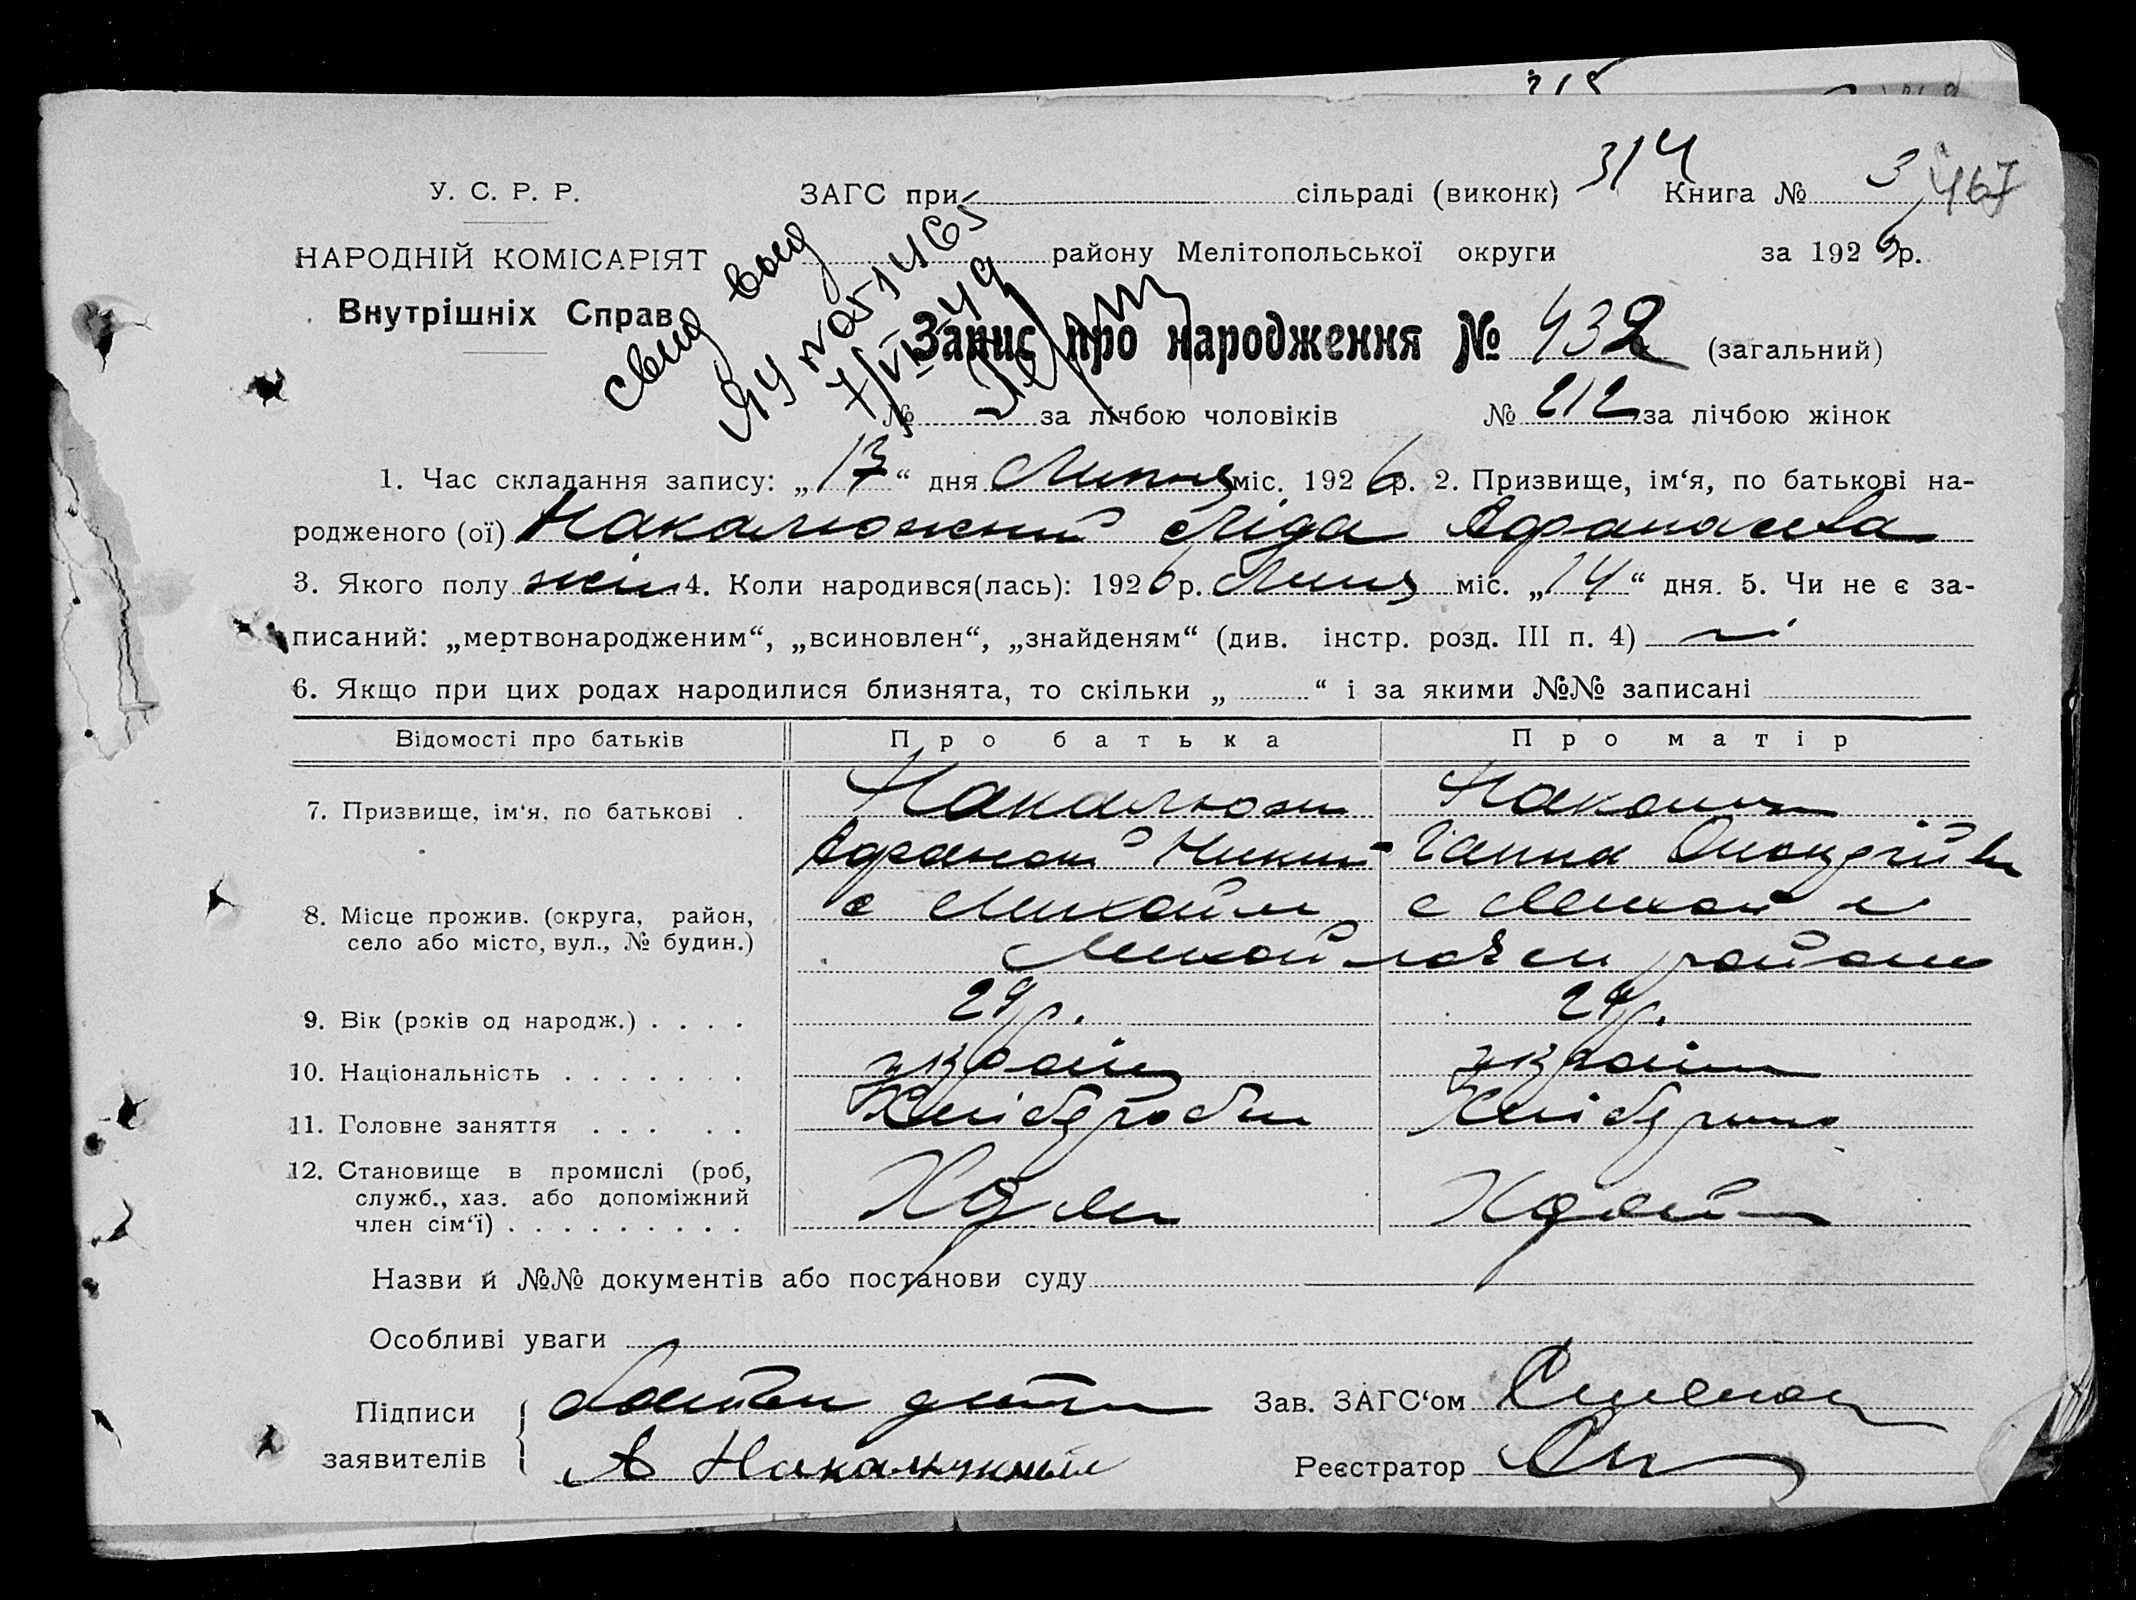 314 3 467
У. С. Р. Р. ЗАГС при сільраді (виконк) Книга №
НАРОДНІЙ КОМІСАРІЯТ району Мелітопольської округи за 1926 р.
Внутрішніх Справ
свид выд
7/VI-49
Запис про народження № 432 (загальний)
№ за лічбою чоловіків № 212 за лічбою жінок
1. Час складання запису: „17“ дня Липня міс. 1926 р. 2. Призвище, ім‘я, по батькові на-
родженого (ої) Накалюжний Ліда Афанасієва
3. Якого полу жін 4. Коли народився(лась): 1926 р. Липня міс. „14“ дня. 5. Чи не є за-
писаний: „мертвонародженим“, „всиновлен“, „знайденям“ (див. інстр. розд. III п. 4) ні
6. Якщо при цих родах народилися близнята, то скільки „ “ і за якими №№ записані
Відомості про батьків Про батька Про матір
7. Призвище, ім‘я, по батькові . Накалюжн
Афанасій Ганна
8. Місце прожив. (округа, район, с Михайл с Михайл
село або місто, вул., № будин.) Михайлівськ району
9. Вік (років од народж.) . . . . 29 р. 24 р.
10. Національність . . . . . . . україн україн
11. Головне заняття . . . . . Хліборобси
12. Становище в промислі (роб,
служб., хаз. або допоміжний
член сім‘ї) . . . . . . . . .
Назви й №№ документів або постанови суду
Особливі уваги
Підписи Зав. ЗАГС‘ом
заявителів А Накалюжный Реєстратор